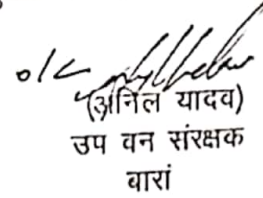 o/c
(अनिल यादव)
उप वन संरक्षक
बारां